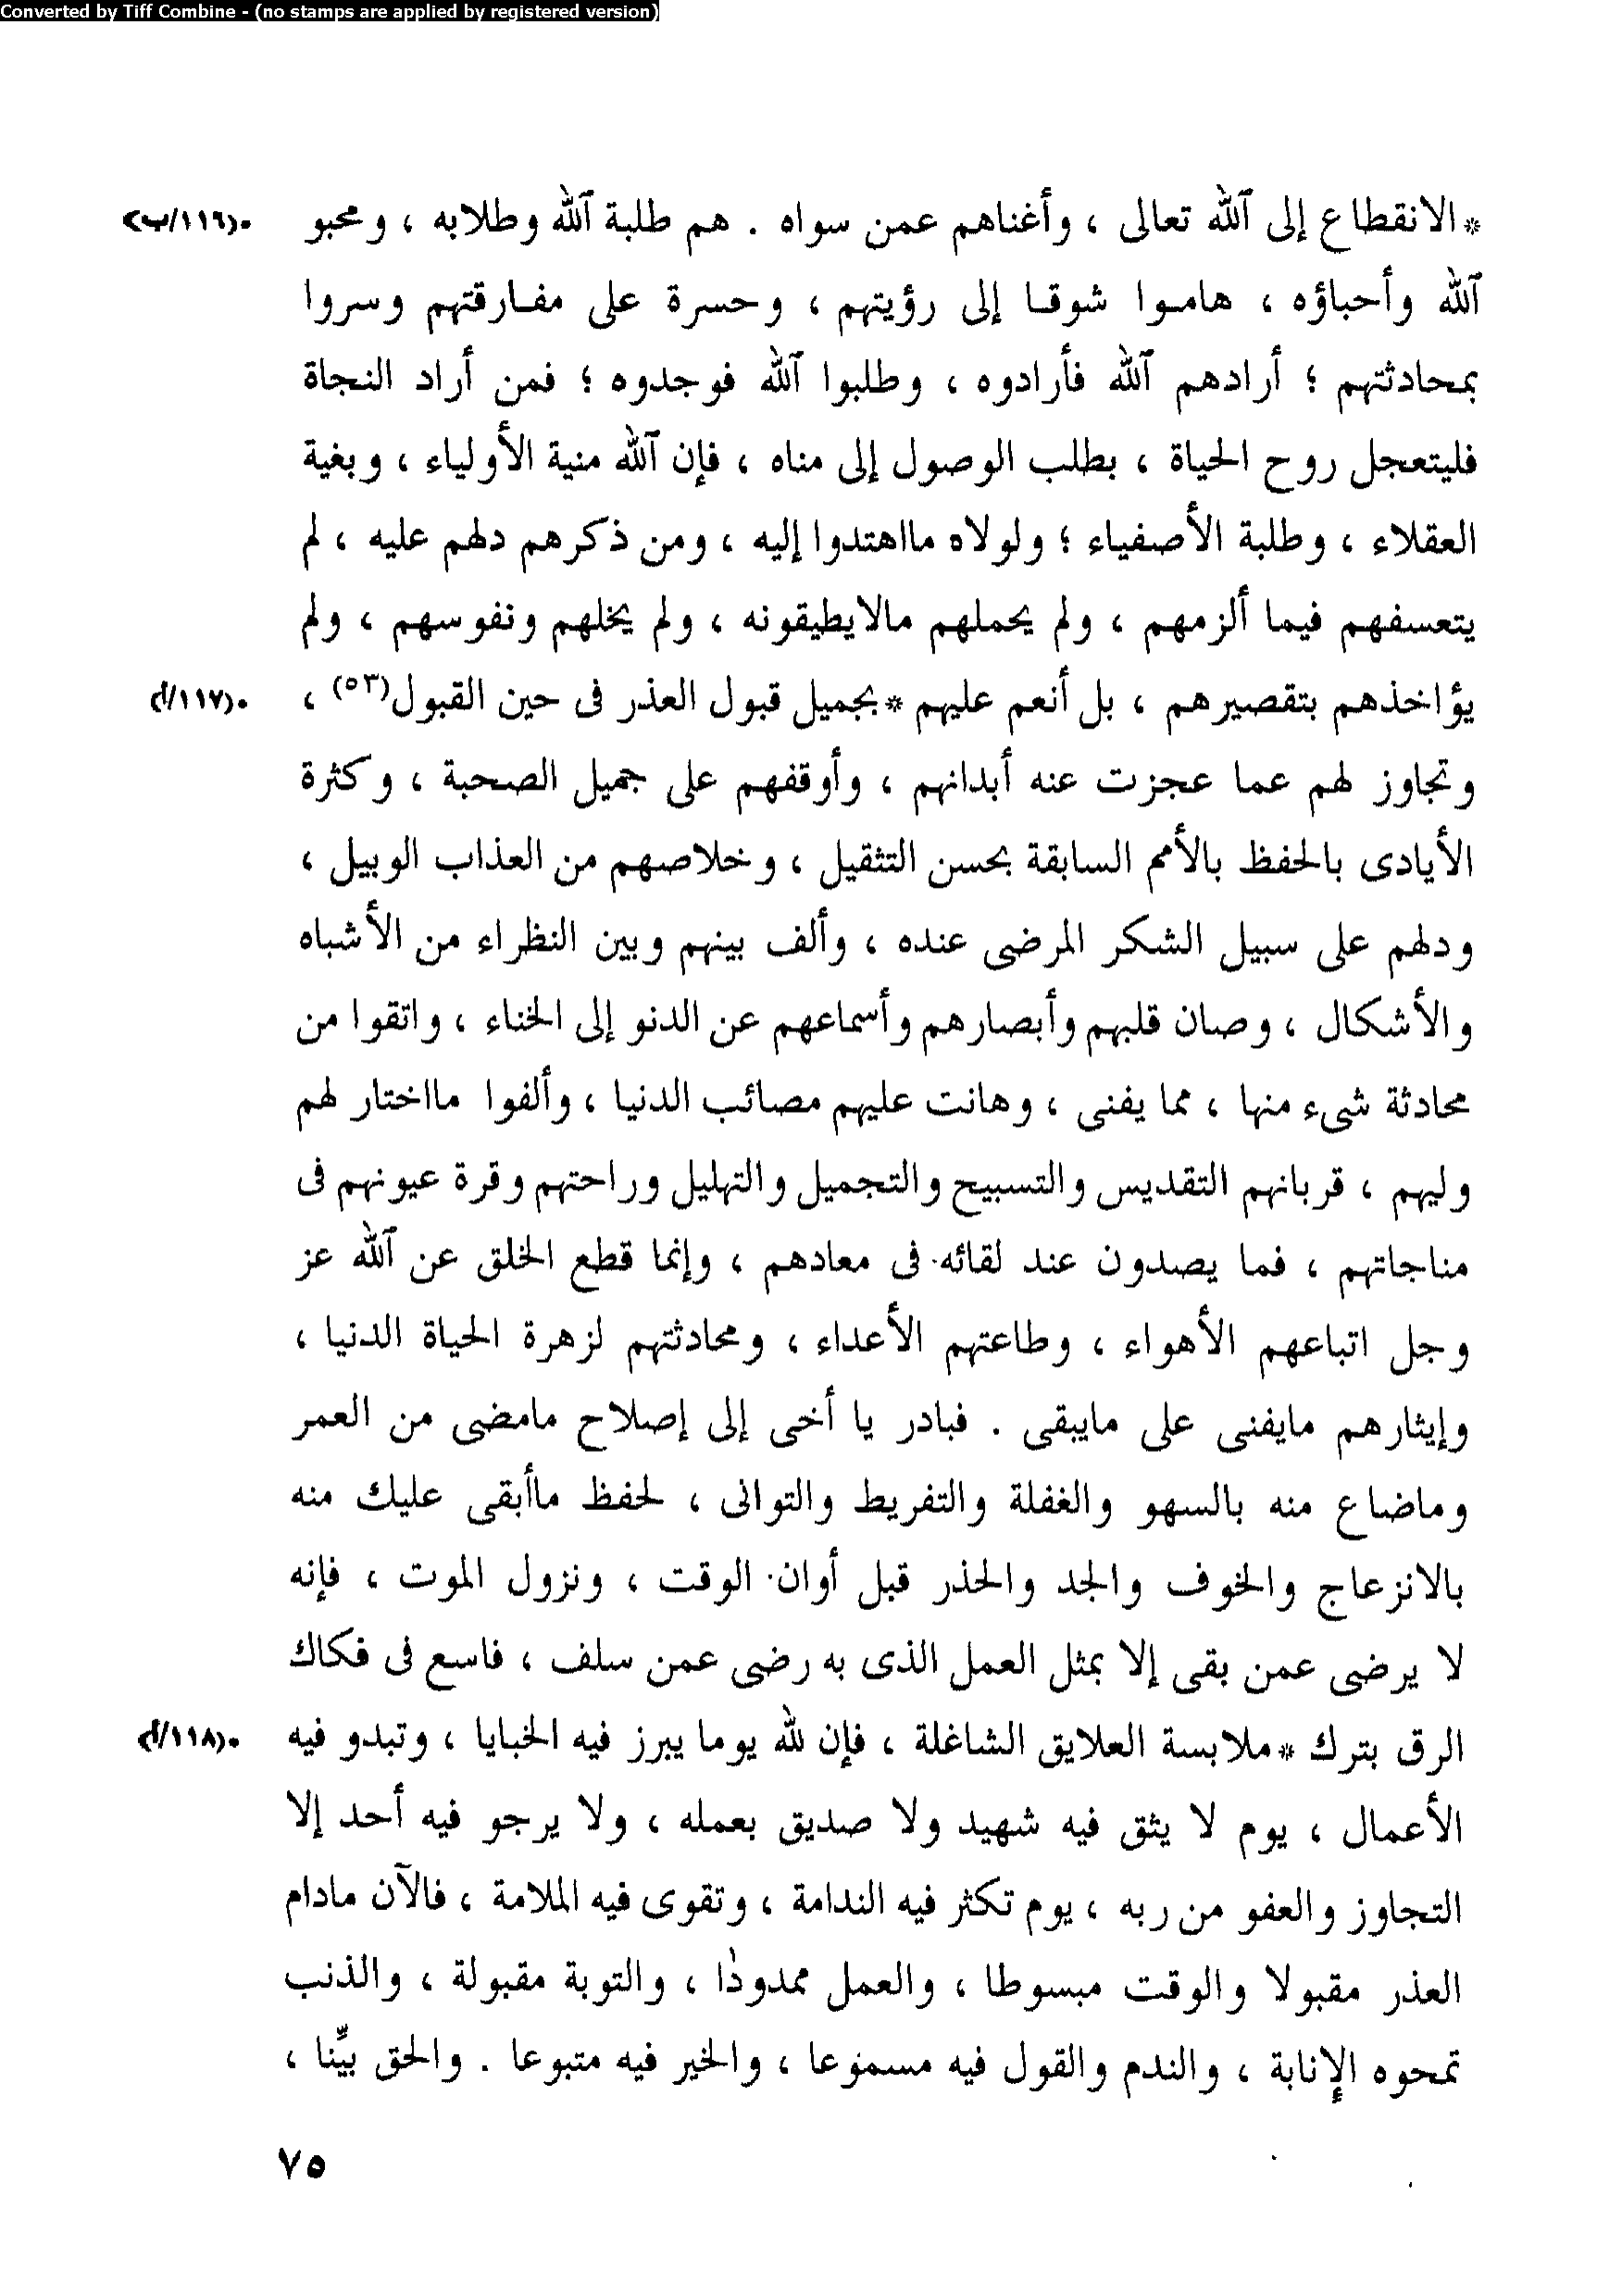 Converted by Tiff Combine - (no stamps are applied by registered version)
*الانقطاع إلى الله تعالى ، وأغناهم عمن سواه . هم طلبة الله وطلابه ، ومحبو (١١٦/ب)
الله وأحباؤه ، هاموا شوقا إلى رؤيتهم ، وحسرة على مفارقتهم وسروا
بمحادثتهم ؛ أرادهم الله فأرادوه ، وطلبوا الله فوجدوه ؛ فمن أراد النجاة
فليتعجل روح الحياة ، بطلب الوصول إلى مناه ، فإن الله منية الأولياء ، وبغية
العقلاء ، وطلبة الأصفياء ؛ ولولاه مااهتدوا إليه ، ومن ذكرهم دلهم عليه ، لم
يتعسفهم فيما ألزمهم ، ولم يحملهم مالايطيقونه ، ولم يخلهم ونفوسهم ، ولم
يؤاخذهم بتقصيرهم ، بل أنعم عليهم *بجميل قبول العذر فى حين القبول(٥٣) ، (١١٧/أ)
وتجاوز لهم عما عجزت عنه أبدانهم ، وأوقفهم على جميل الصحبة ، وكثرة
الأيادى بالحفظ بالأمم السابقة بحسن التثقيل ، وخلاصهم من العذاب الوبيل ،
ودلهم على سبيل الشكر المرضى عنده ، وألف بينهم وبين النظراء من الأشباه
والأشكال ، وصان قلبهم وأبصارهم وأسماعهم عن الدنو إلى الخناء ، واتقوا من
محادثة شىء منها ، مما يفنى ، وهانت عليهم مصائب الدنيا ، وألفوا مااختار لهم
وليهم ، قربانهم التقديس والتسبيح والتجميل والتهليل وراحتهم وقرة عيونهم فى
مناجاتهم ، فما يصدون عند لقائه فى معادهم ، وإنما قطع الخلق عن الله عز
وجل اتباعهم الأهواء ، وطاعتهم الأعداء ، ومحادثتهم لزهرة الحياة الدنيا ،
وإيثارهم مايفنى على مايبقى . فبادر يا أخى إلى إصلاح مامضى من العمر
وماضاع منه بالسهو والغفلة والتفريط والتوانى ، لحفظ ماأبقى عليك منه
بالانزعاج والخوف والجد والحذر قبل أوان الوقت ، ونزول الموت ، فإنه
لا يرضى عمن بقى إلا بمثل العمل الذى به رضى عمن سلف ، فاسع فى فكاك
الرق بترك *ملابسة العلايق الشاغلة ، فإن لله يوما يبرز فيه الخبايا ، وتبدو فيه (١١٨/أ)
الأعمال ، يوم لا يثق فيه شهيد ولا صديق بعمله ، ولا يرجو فيه أحد إلا
التجاوز والعفو من ربه ، يوم تكثر فيه الندامة ، وتقوى فيه الملامة ، فالآن مادام
العذر مقبولا والوقت مبسوطا ، والعمل ممدودا ، والتوبة مقبولة ، والذنب
تمحوه الإنابة ، والندم والقول فيه مسموعا ، والخير فيه متبوعا . والحق بيِّنا ،
٧٥